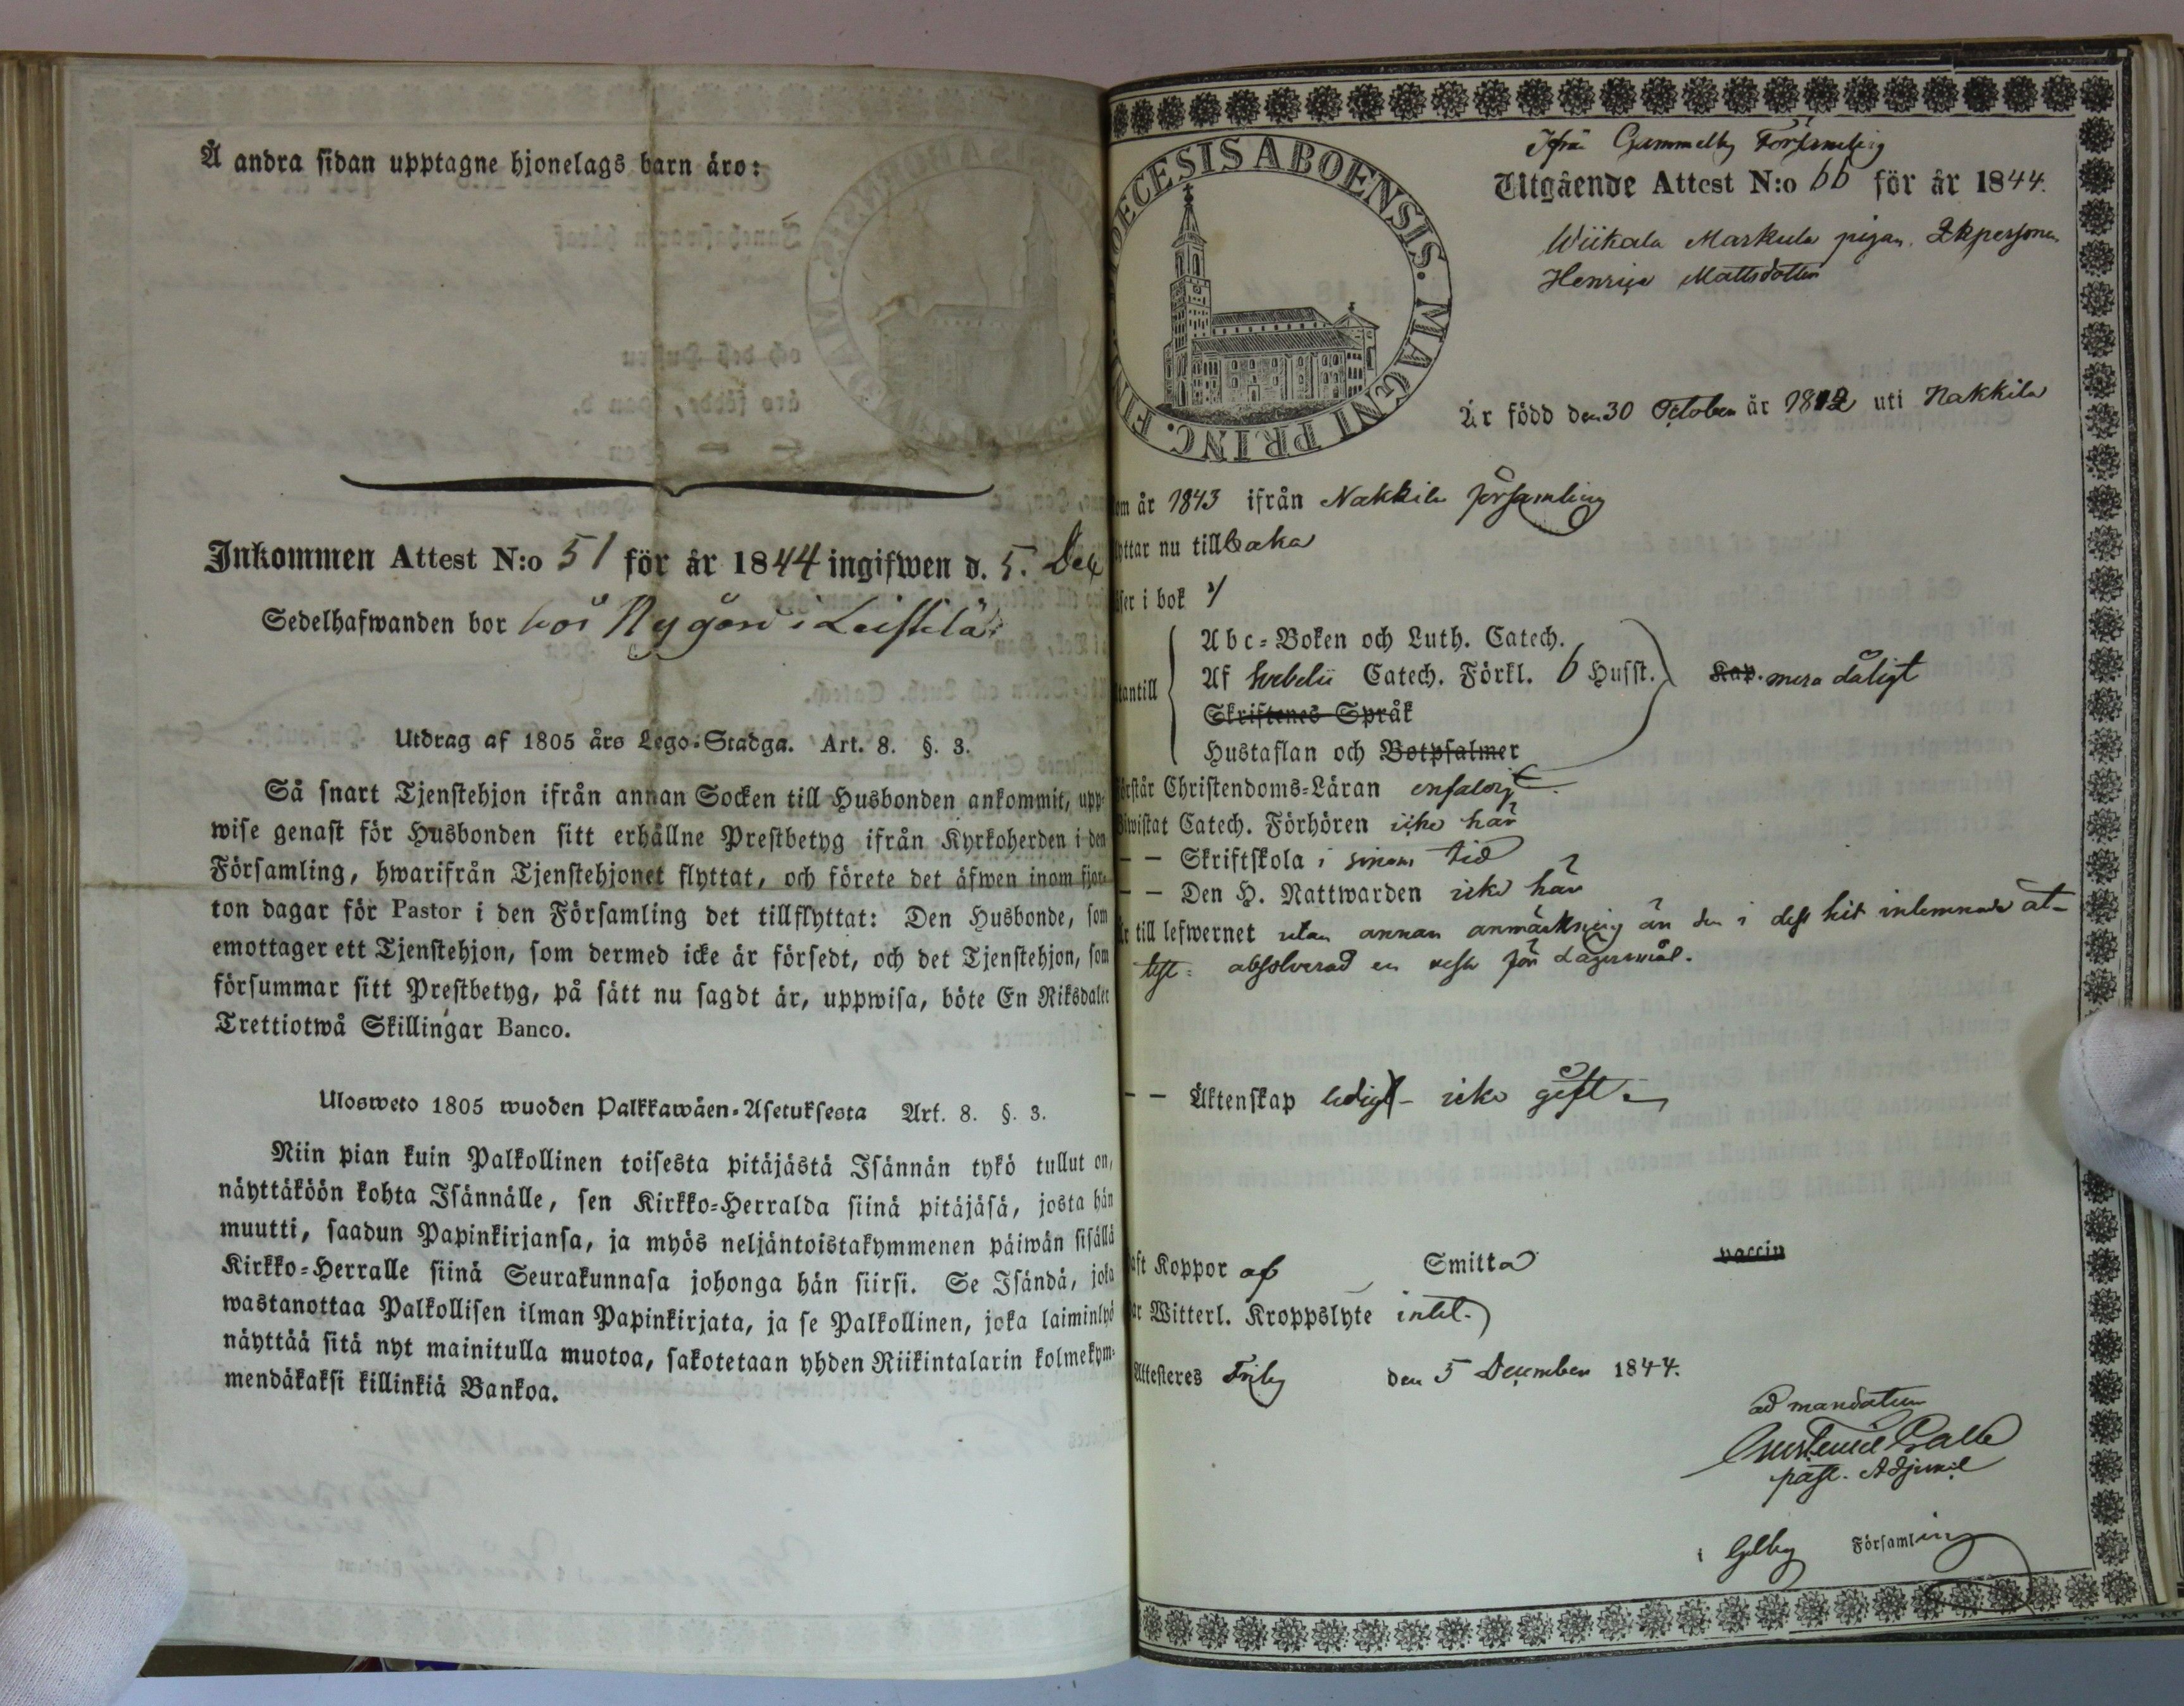 Å andra sidan upptagne hjonelags barn äro:
Inkommen Attest N:o 51 för år 1844 ingifwen d. 5. Dec
Sedelhafwanden bor hos Nygård i Leistilä
Utdrag af 1805 års Lego-Stadga. Art. 8. §. 3.
Så snart Tjenstehjon ifrån annan Socken till Husbonden ankommit, upp-
wise genast för Husbonden sitt erhållne Prestbetyg ifrån Kyrkoherden i den
Församling, hwarifrån Tjenstehjonet flyttat, och förete det äfwen inom fjor-
ton dagar för Pastor i den Församling det tillflyttat: Den Husbonde, som
emottager ett Tjenstehjon, som dermed icke är försedt, och det Tjenstehjon, som
försummar sitt Prestbetyg, på sätt nu sagdt är, uppwisa, böte En Riksdaler
Trettiotwå Skillingar Banco.
Ulosweto 1805 wuoden Palkkawäen-Asetuksesta Art. 8. §. 3.
Niin pian kuin Palkollinen toisesta pitäjästä Isännän tykö tullut on,
näyttäköön kohta Isännälle, sen Kirkko-Herralda siinä pitäjäsä, josta hän
muutti, saadun Papinkirjansa, ja myös neljäntoistakymmenen päiwän sisällä
Kirkko-Herralle siinä Seurakunnasa johonga hän siirsi. Se Isändä, joka
wastanottaa Palkollisen ilman Papinkirjata, ja se Palkollinen, joka laiminlyö
näyttää sitä nyt mainitulla muotoa, sakotetaan yhden Riikintalarin kolmekym-
mendäkaksi killinkiä Bankoa.
DIOECESIS ABOENSIS. MAGNI PRINC. FIN
Ifrån Gammelby Församling
Utgående Attest N:o 66 för år 1844.
Wiikala Markula pigan Qkpersonen
Henrica Mattsdotter
Är född den 30 October år 1812 uti Nakkila
om år 1843 ifrån Nakkila församling
yttar nu tillbaka
ser i bok
Abc-Boken och Luth. Catech.
Af Svebelii Catech. Förkl. 6 Husst. Kap. mera dåligt
tantill
Skriftenes Språk
Hustaflan och Botpsalmer
örstår Christendoms-Läran enfaldigt
Biwistat Catech. Förhören icke här
— — Skriftskola i sinom tid
— — Den H. Nattwarden icke här
Är till lefwernet utan annan anmärkning än den i dess hit inlemnade at-
test: absolverad en resa för Lägersmål.
— — Äktenskap ledig - icke gift
aft Koppor af Smitta vaccin
ar Witterl. Kroppslyte intet.
Attesteres Friby den 5 December 1844.
ad mandatum
past. Adjunct
i Glby Församling